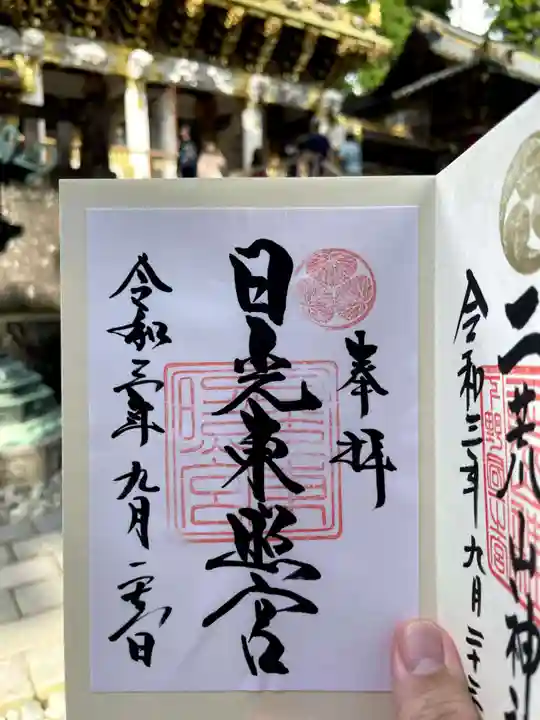 二荒山神社
令和三年九月二十六
奉拝
日光東照宮
令和三年九月二六日